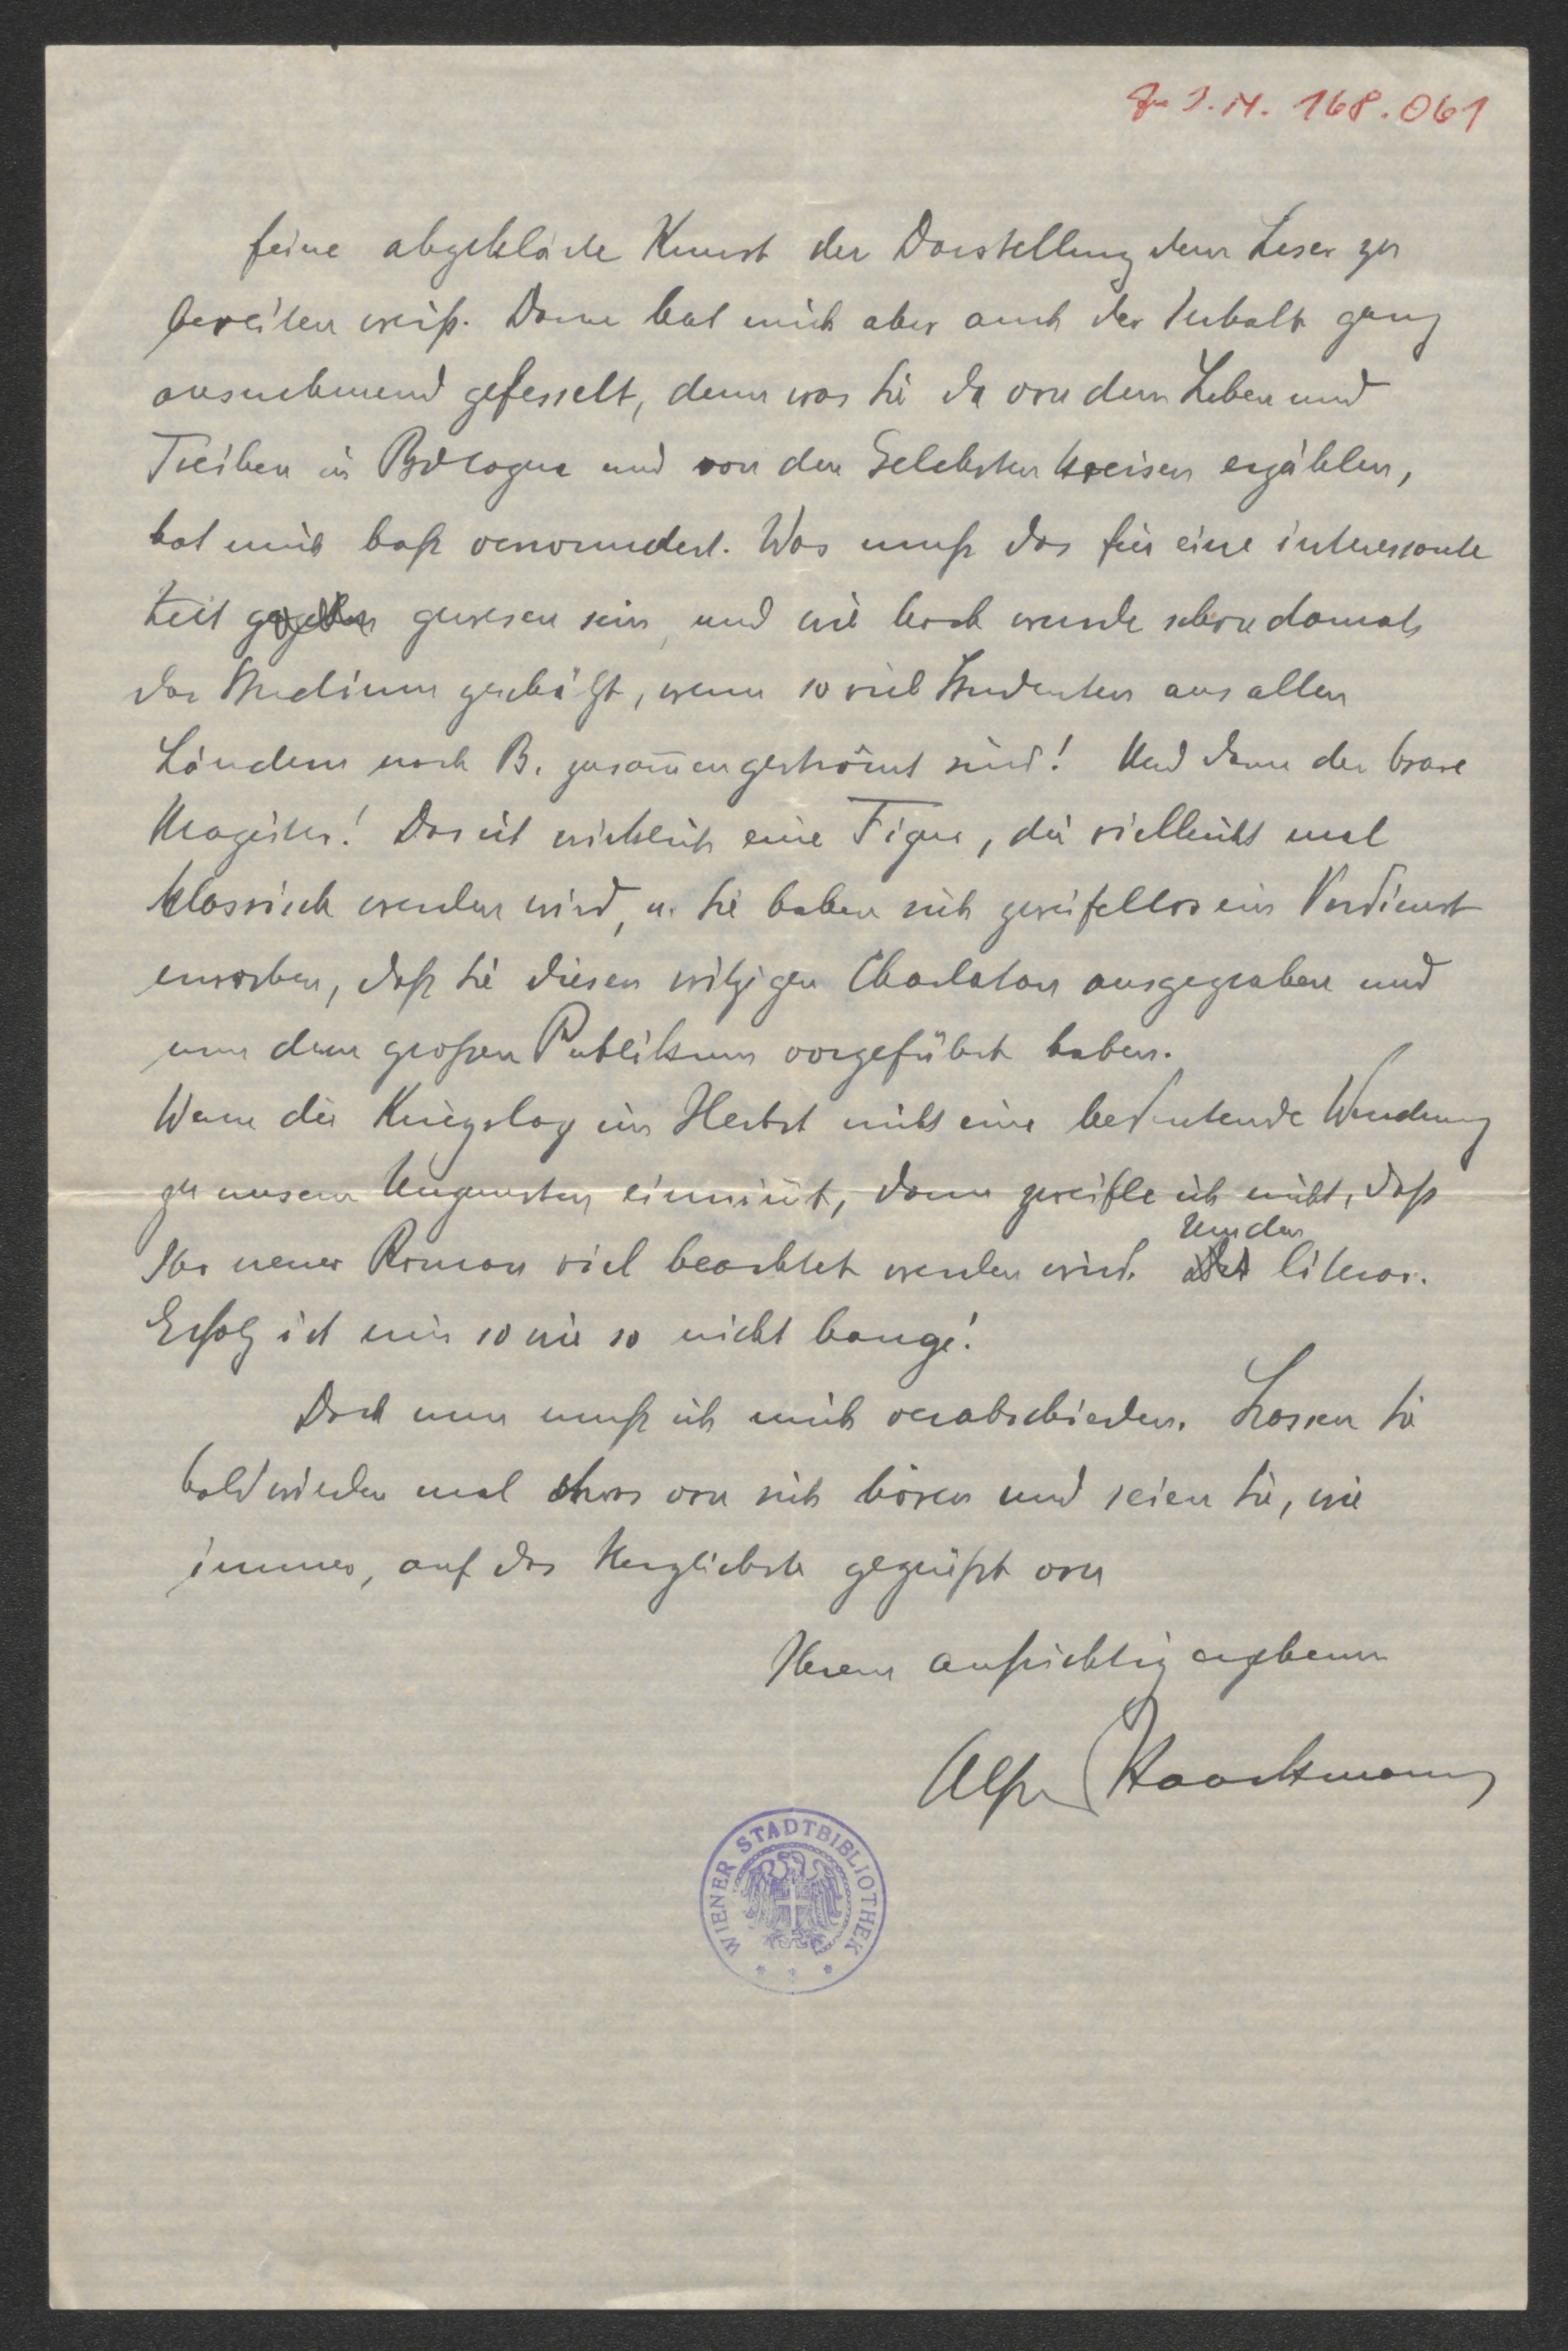 Zu I.N. 168.061
feine abgeklärte Kunst der Darstellung dem Leser zu
bereiten weiß. Dann hat mich aber auch der Inhalt ganz
ausnehmend gefesselt, denn was Sie da von dem Leben und
Treiben in Bologna und von den Gelehrtenkreisen erzählen,
hat mich baß verwundert. Was muß das für eine interessante
Zeit gewesen sein, und wie hoch wurde schon damals
das Studium geschätzt, wenn so viel Studenten aus allen
Ländern nach B. zusam̅engeströmt sind! Und dann der brave
Magister! Das ist wirklich eine Figur, die vielleicht mal
klassisch werden wird, u. Sie haben sich zweifellos ein Verdienst
erworben, daß Sie diesen witzigen Charlatan ausgegraben und
nun dem großen Publikum vorgeführt haben.
Wenn die Kriegslage im Herbst nicht eine bedeutende Wendung
zu unsern Ungunsten einnim̅t, dann zweifle ich nicht, daß
Ihr neuer Roman viel beachtet werden wird. Um den literar.
Erfolg ist mir so wie so nicht bange!
Doch nun muß ich mich verabschieden. Lassen Sie
bald wieder mal etwas von sich hören und seien Sie, wie
immer, auf das Herzlichste gegrüßt von
Ihrem aufrichtig ergebenen
WIENER STADTBIBLIOTHEK